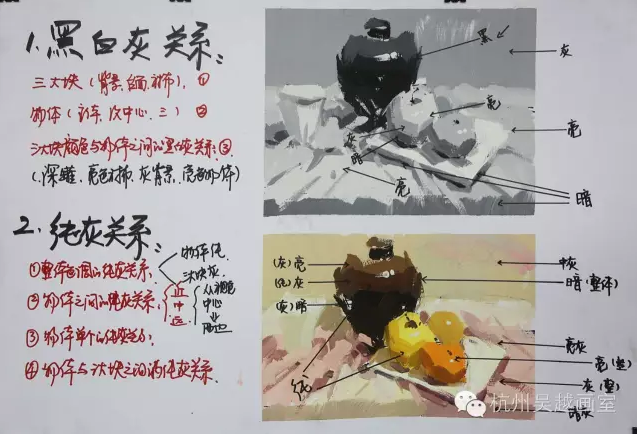 1.黑白灰关系:
三大块(背景、台面、衬布). ①
物体(主车、次中心、三) ②
三大块颜色与物体之间的黑白灰关系.③
(深罐、亮色衬布、灰背景、亮的物体)
2.纯灰关系:
①整体画面的纯灰关系.
物体纯
大块灰
②物体之间的纯灰关系.
近
中
远
从视觉
中心
③物体单个的纯灰
④物体与大块之间的纯灰关系
黑
灰
亮
亮
灰
暗
亮
暗
(灰)亮
(纯)灰
(灰)暗
纯
中灰
暗(整体)
亮灰
亮
灰
暗灰
杭州吴越画室